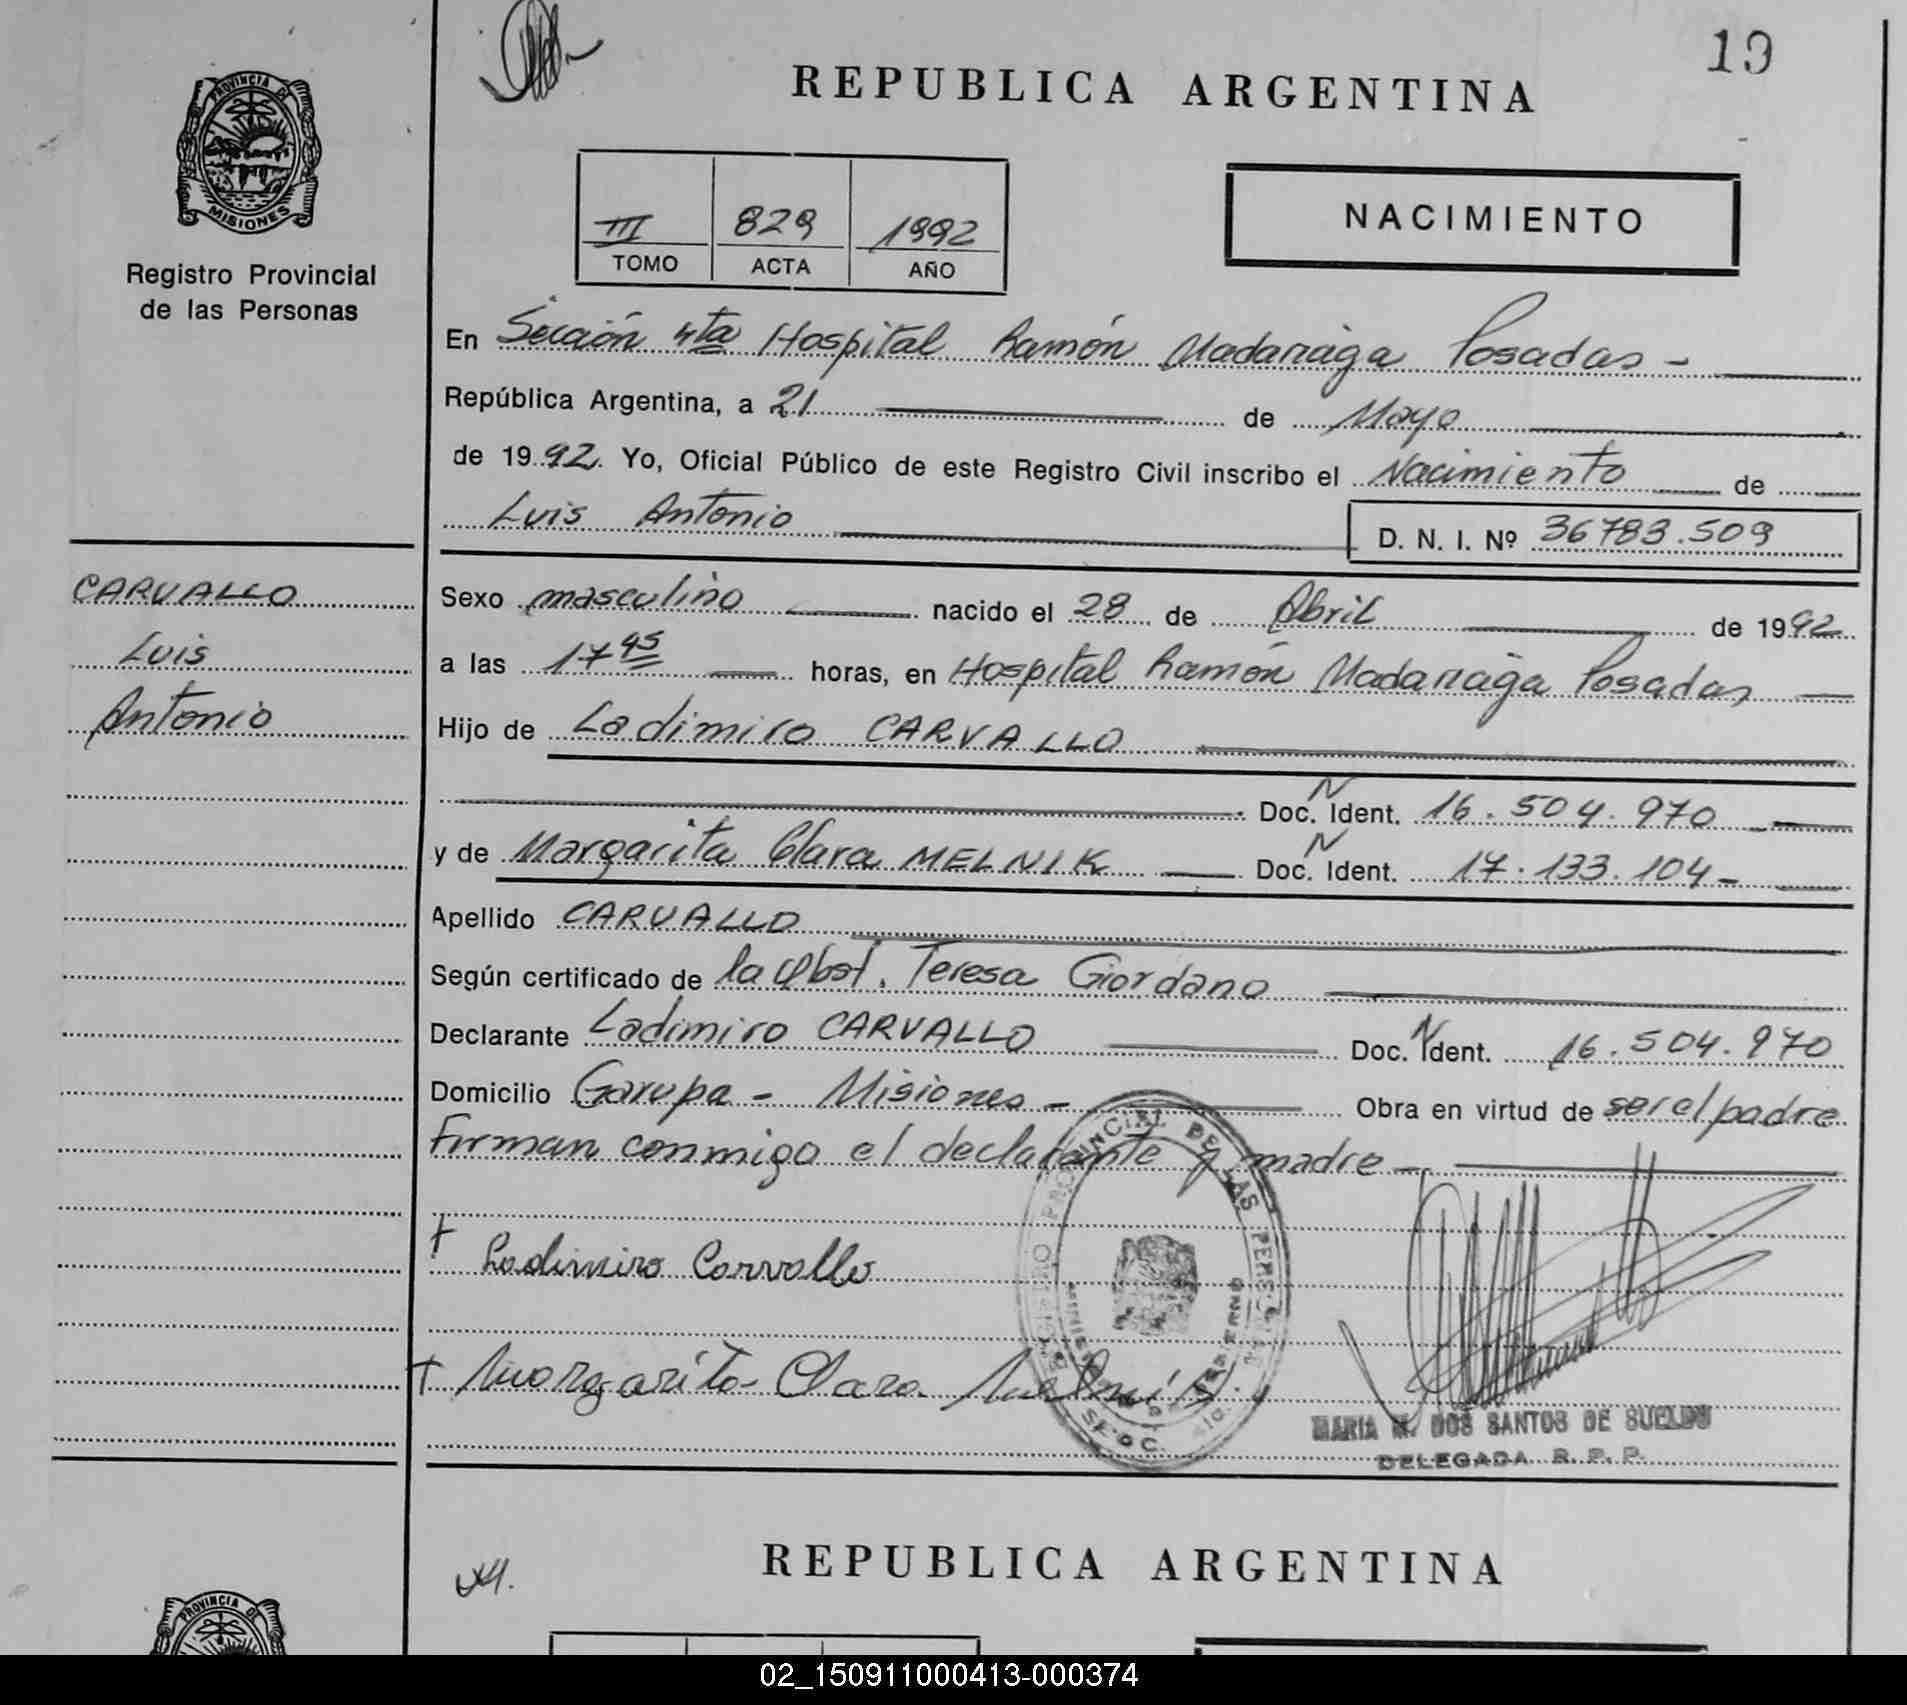 19
REPUBLICA ARGENTINA
PROVINCIA DE
MISIONES
Registro Provincial
de las Personas
III 829 1992
TOMO ACTA AÑO
NACIMIENTO
En Sección 4ta Hospital Ramón Madariaga Posadas -
República Argentina, a 21 de Mayo
de 1992. Yo, Oficial Público de este Registro Civil inscribo el Nacimiento de
Luis Antonio
D. N. I. Nº 36783.509
CARVALLO
Luis
Antonio
Sexo masculino nacido el 28 de Abril de 1992
a las 17 45 horas, en Hospital Ramón Madariaga Posadas
Hijo de Ladimiro CARVALLO
Doc. N Ident. 16.504.970
y de Margarita Clara MELNIK Doc. N Ident. 17.133.104-
Apellido CARVALLO
Según certificado de la Obst. Teresa Giordano
Declarante Ladimiro CARVALLO Doc. N Ident. 16.504.970
Domicilio Garupa - Misiones - Obra en virtud de ser el padre
Firman conmigo el declarante y madre -
Ladimiro Carvallo
Margarita Clara Melnik
MARIA M. DOS SANTOS DE SUELDO
DELEGADA R. P. P.
REPUBLICA ARGENTINA
PROVINCIA DE
02_150911000413-000374